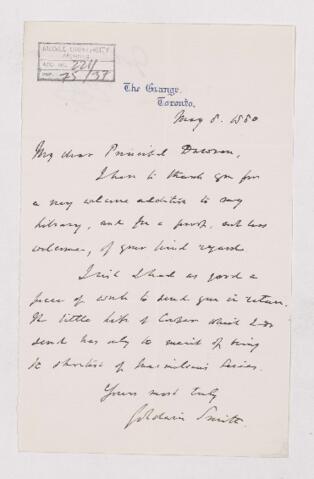 McGILL UNIVERSITY
ARCHIVES
ACC. NO. 2211
REF. 25/39
The Grange.
Toronto.
May 8. 1880
My dear Principal Dawson,
I have to thank you for
a very welcome addition to my
library, and for a proof, not less
welcome, of your kind regard.
I wish I had as good a
piece of work to send you in return.
The little life of Cowper which I do
send has only the merit of being
the shortest of Macmillan's Series.
Yours most truly
Goldwin Smith